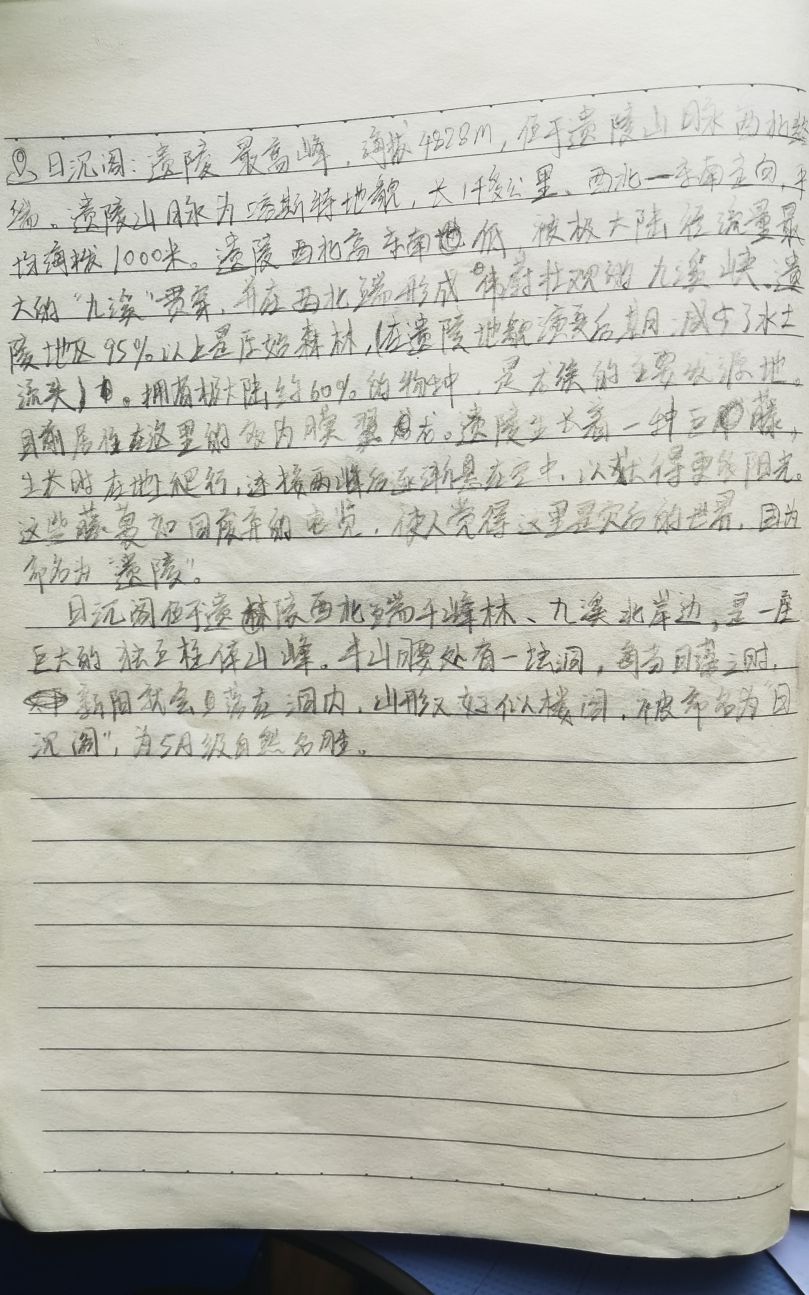 日沉阁：遗陵最高峰，海拔4828m，位于遗陵山脉西北
端。遗陵山脉为喀斯特地貌，长1千多公里、西北—东南走向，平
均海拔1000米。遗陵西北高东南低，被极大陆径流量最
大的“九溪”贯穿，并在西北端形成壮观的九溪峡。遗
陵地区95%以上是原始森林，(在遗陵地貌演变后期减少了水土
流失)。拥有极大陆约60%的物种，是龙族的主要发源地。
目前居住在这里的多为膜翼龙。遗陵生长着一种巨藤，
生长时在地上爬行，连接两峰后逐渐悬在空中，以获得更多阳光。
这些藤蔓如同废弃的电缆，使人觉得这里是灾后的世界，因为
命名为“遗陵”。
日沉阁位于遗陵西北端千峰林、九溪北岸边，是一座
巨大的独立柱体山峰。半山腰处有一坛洞，每当日落之时，
新阳就会且落在洞内，山形又好似楼阁，被命名为“日
沉阁”，为5A级自然名胜。